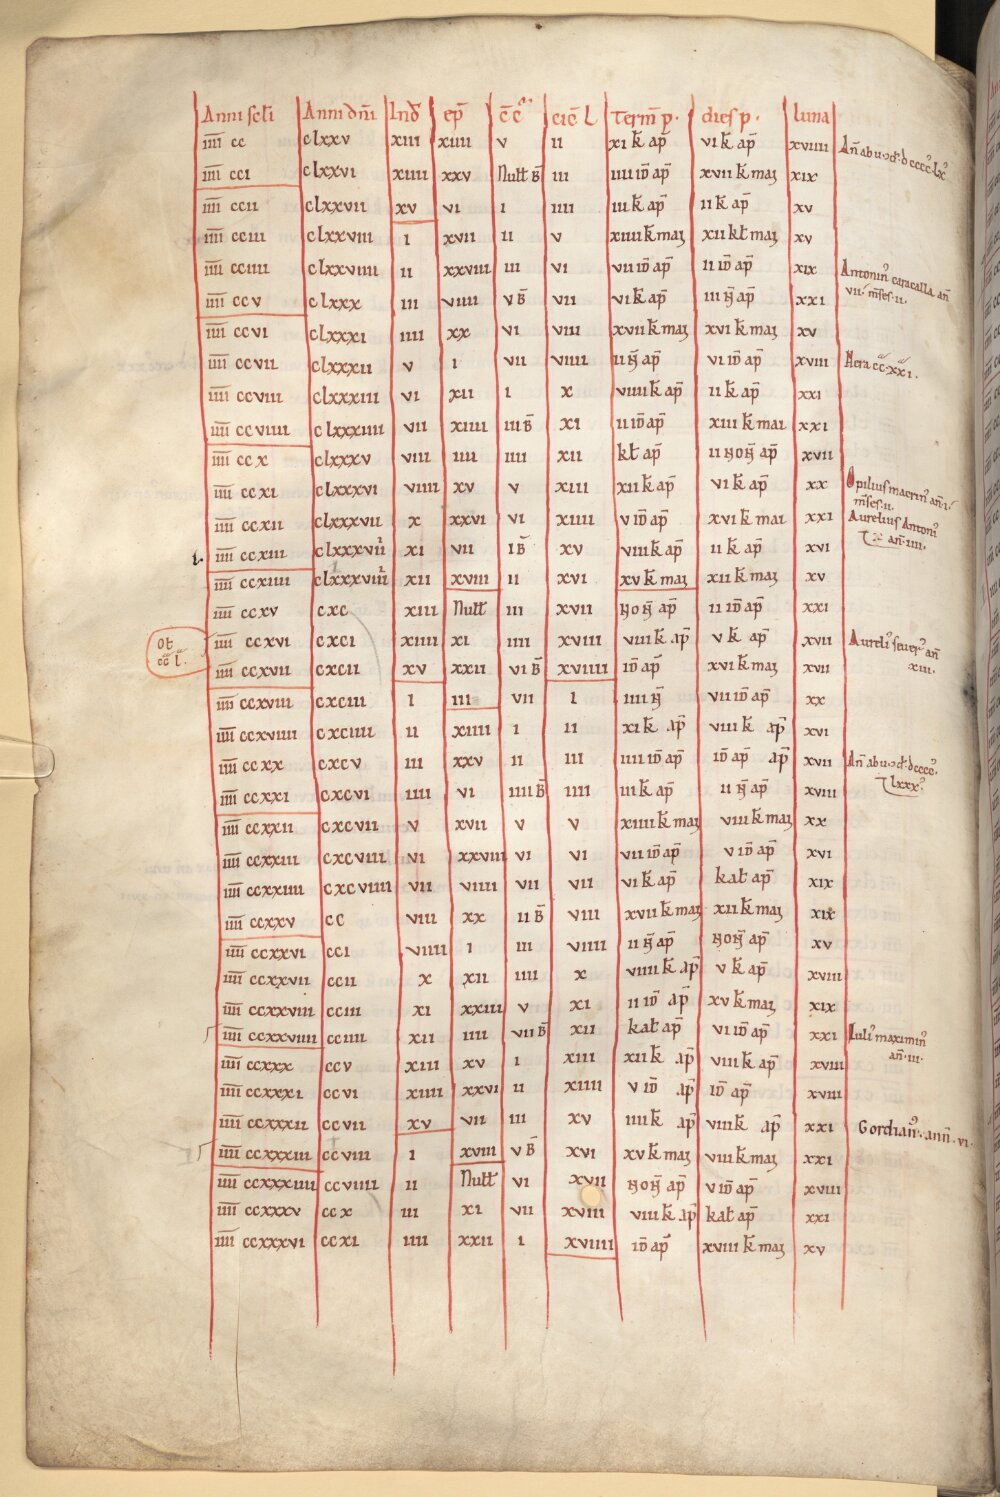 Anni scłi Anni dñi Ind̄ ep̄ c̄c̄ cic̄ l Term̄ p. dies p. luna
īīīī cc clxxv xiii xiiii v ii xi k̄ ap̄ vi k̄ ap̄ xviiii
īīīī cci clxxvi xiiii xxv Nułł B̄ iii iiii id̄ ap̄ xvii k̄ maȝ xix
īīīī ccii clxxvii xv vi i iiii iii k̄ ap̄ ii k̄ ap̄ xv
īīīī cciii clxxviii i xvii ii v xiiii k̄ maȝ xii kł maȝ xv
īīīī cciiii clxxviiii ii xxviii iii vi vii id̄ ap̄ ii id̄ ap̄ xix Antonin᷒ caracalla an̄
vii. m̄ses. ii.
īīīī ccv clxxx iii viiii v B̄ vii vi k̄ ap̄ iii n̄ ap̄ xxi
īīīī ccvi clxxxi iiii xx vi viii xvii k̄ maȝ xvi k̄ maȝ xv
īīīī ccvii clxxxii v i vii viiii ii n̄ ap̄ vi id̄ ap̄ xviii Hera cc. xxi.
īīīī ccviii clxxxiii vi xii i x viiii k̄ ap̄ ii k̄ ap̄ xxi
īīīī ccviiii clxxxiiii vii xiiii iii B̄ xi ii id̄ ap̄ xiii k̄ mai xxi
īīīī ccx clxxxv viii iiii iiii xii kł ap̄ ii non̄ ap̄ xvii
īīīī ccxi clxxxvi viiii xv v xiii xii k̄ ap̄ vi k̄ ap̄ xx Opilius macrin᷒ an̄. i.
m̄ses. ii.
īīīī ccxii clxxxvii x xxvi vi xiiii v id̄ ap̄ xvi k̄ mai xxi Aurelius Antoni᷒
an̄. iiii.
īīīī ccxiii clxxxvii xi vii i B̄ xv viii k̄ ap̄ ii k̄ ap̄ xvi
īīīī ccxiiii clxxxviii xii xviii ii xvi xv k̄ maȝ xii k̄ maȝ xv
īīīī ccxv cxc xiii Nułł iii xvii non̄ ap̄ ii id̄ ap̄ xxi
īīīī ccxvi cxci xiiii xi iiii xviii viii k̄ ap̄ v k̄ ap̄ xvii Aureli᷒ seuer᷒ an̄
xiii.
īīīī ccxvii cxcii xv xxii vi B̄ xviiii id̄ ap̄ xvi k̄ maȝ xvii
īīīī ccxviii cxciii i iii vii i iiii n̄ vii id̄ ap̄ xx
īīīī ccxviiii cxciiii ii xiiii i ii xi k̄ ap̄ viii k̄ ap̄ xvi
īīīī ccxx cxcv iii xxv ii iii iiii id̄ ap̄ id̄ ap̄ ap̄ xvii
īīīī ccxxi cxcvi iiii vi iiii B̄ iiii iii k̄ ap̄ ii n̄ ap̄ xviii
īīīī ccxxii cxcvii v xvii v v xiiii k̄ maȝ viii k̄ maȝ xx
īīīī ccxxiii cxcviii vi xxviii vi vi vii id̄ ap̄ v id̄ ap̄ xvi
īīīī ccxxiiii cxcviiii vii viiii vii vii vi k̄ ap̄ kał ap̄ xix
īīīī ccxxv cc viii xx ii B̄ viii xvii k̄ maȝ xii k̄ maȝ xix
īīīī ccxxvi cci viiii i iii viiii ii n̄ ap̄ non̄ ap̄ xv
īīīī ccxxvii ccii x xii iiii x viiii k̄ ap̄ v k̄ ap̄ xviii
īīīī ccxxviii cciii xi xxiii v xi ii id̄ ap̄ xv k̄ maȝ xix
īīīī ccxxviiii cciiii xii iiii vii B̄ xii kał ap̄ vi id̄ ap̄ xxi Iuli᷒ maximin᷒
an̄. iii.
īīīī ccxxx ccv xiii xv i xiii xii k̄ ap̄ viii k̄ ap̄ xviii
īīīī ccxxxi ccvi xiiii xxvi ii xiiii v id̄ ap̄ id̄ ap̄ xviii
īīīī ccxxxii ccvii xv vii iii xv iiii k̄ ap̄ viii k̄ ap̄ xxi Gordian᷒. ann̄. vi.
īīīī ccxxxiii ccviii i xviii v B̄ xvi xv k̄ maȝ viii k̄ maȝ xxi
īīīī ccxxxiiii ccviiii ii Nułł vi xvii non̄ ap̄ v id̄ ap̄ xviii
īīīī ccxxxv ccx iii xi vii xviii viii k̄ ap̄ kał ap̄ xxi
īīīī ccxxxvi ccxi iiii xxii i xviiii id̄ ap̄ xviii k̄ maȝ xv